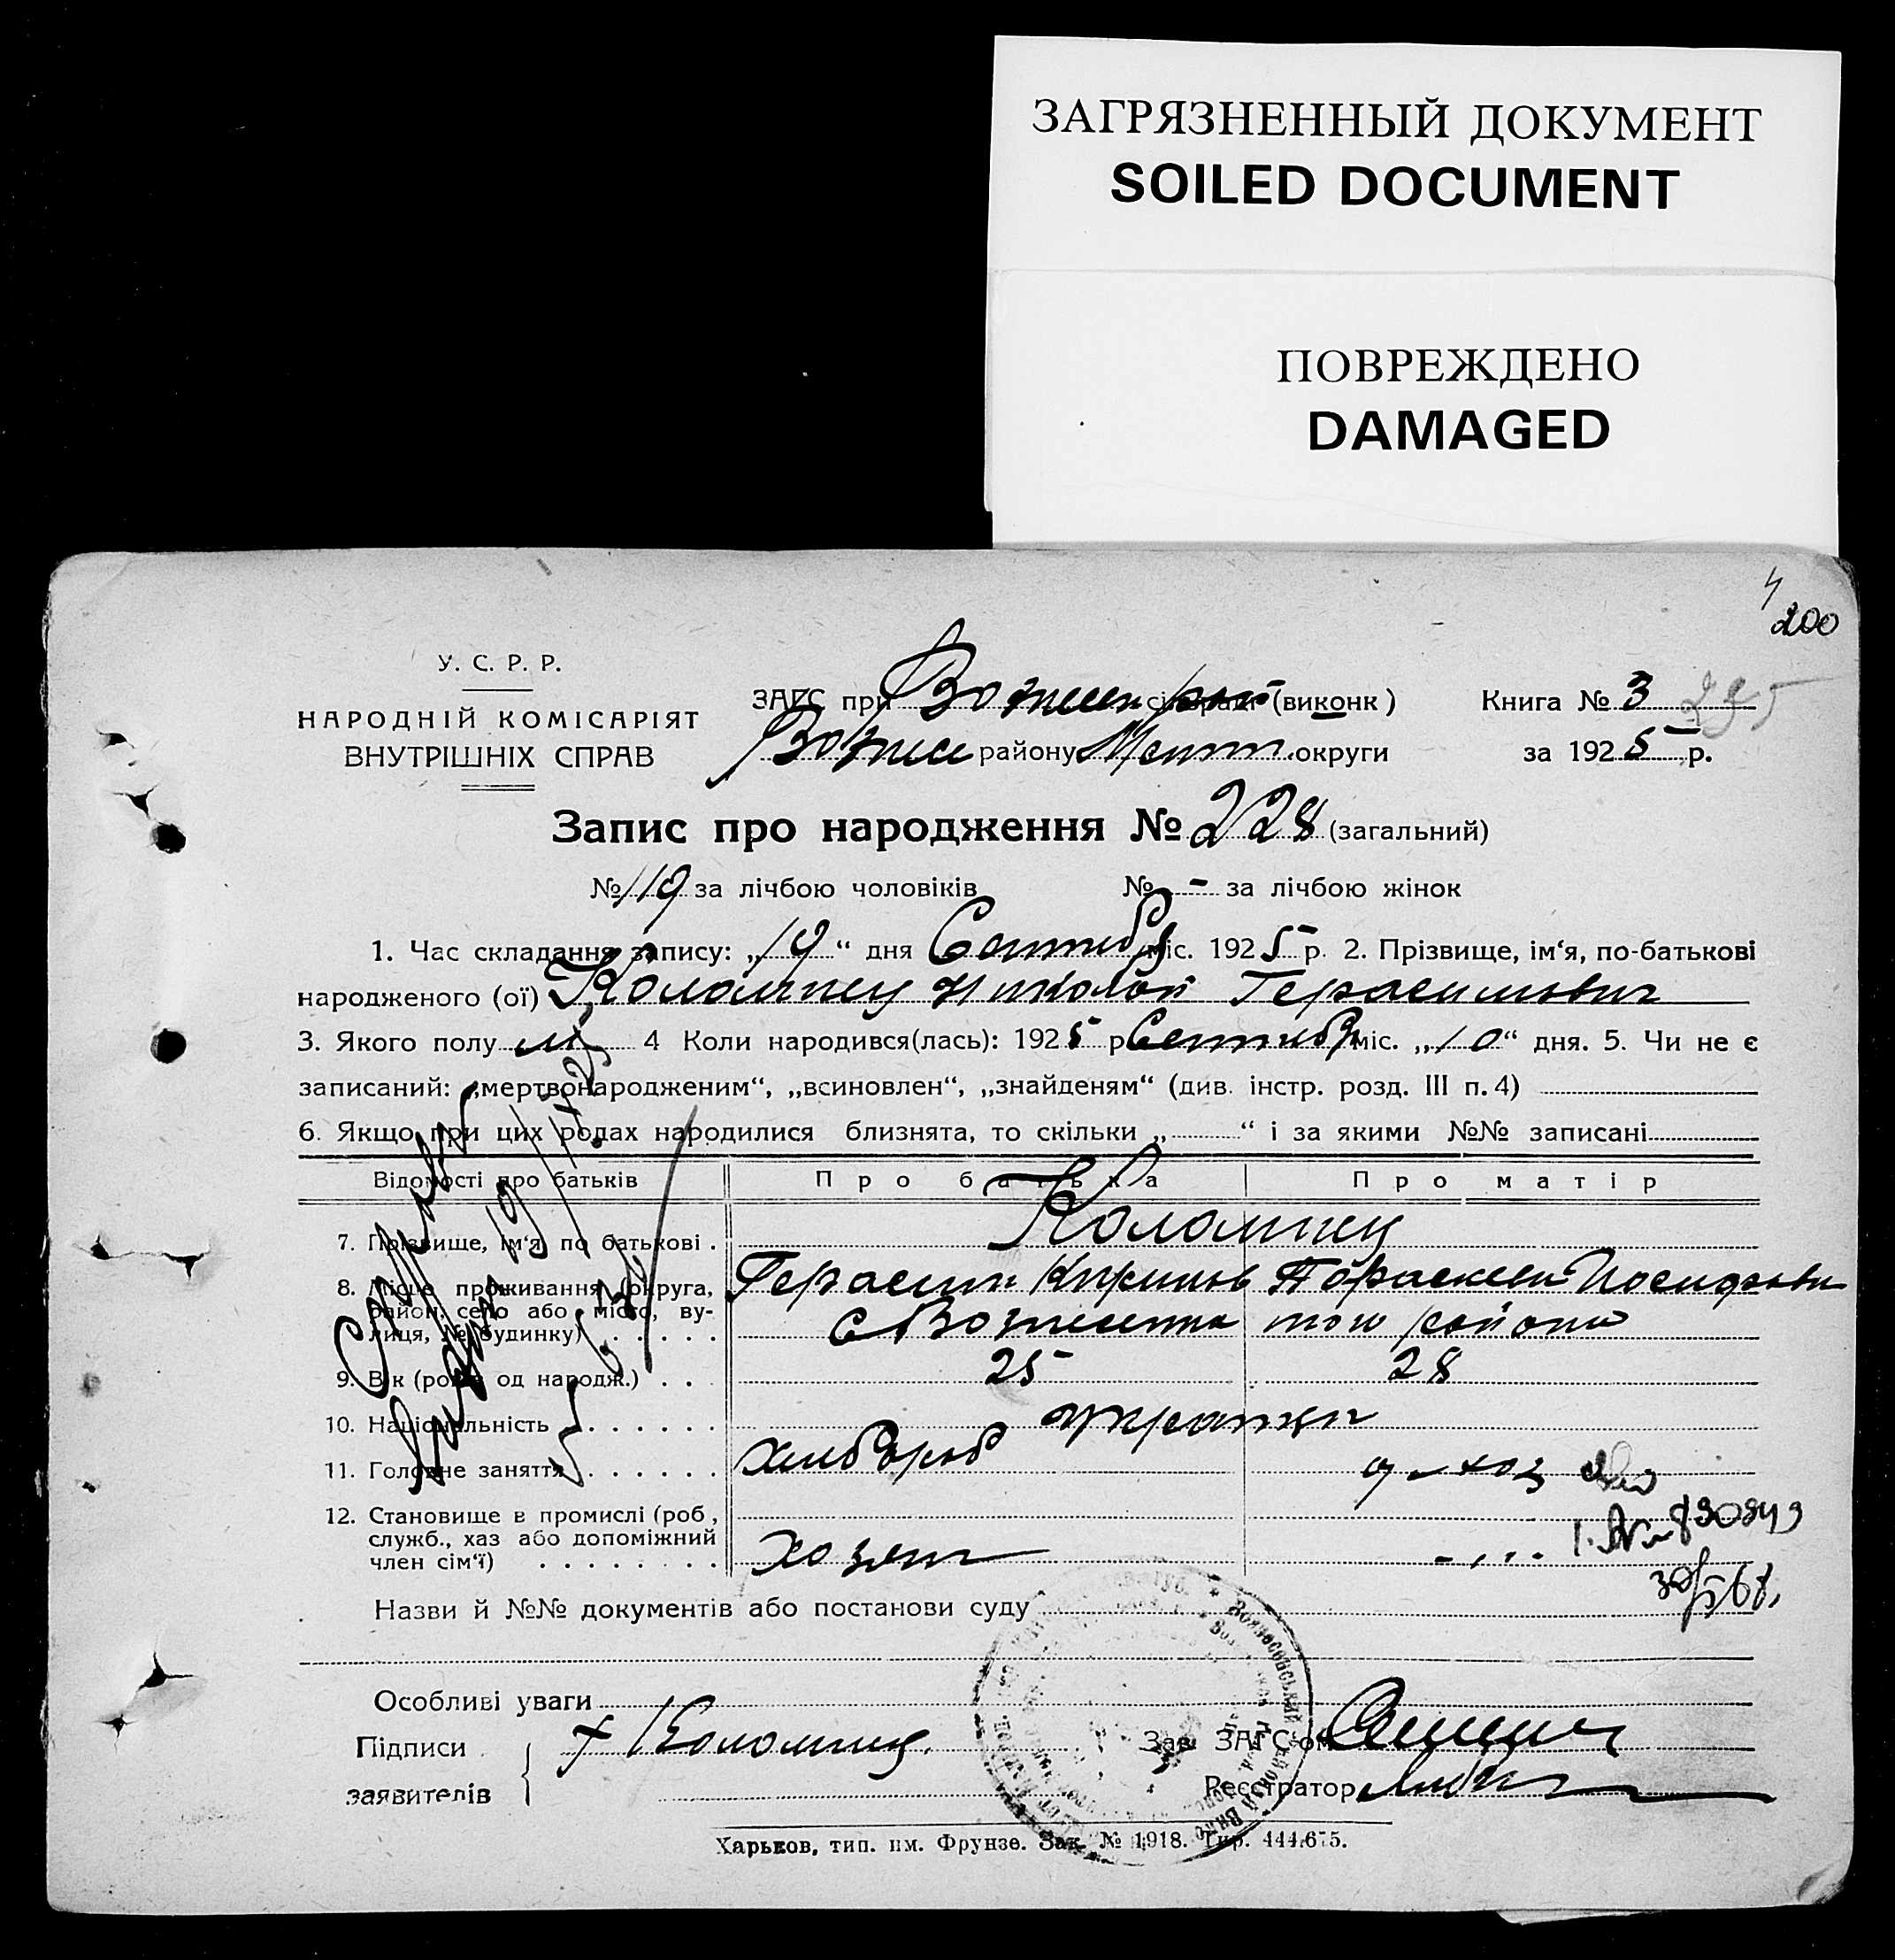 ЗАГРЯЗНЕННЫЙ ДОКУМЕНТ
SOILED DOCUMENT
ПОВРЕЖДЕНО
DAMAGED
4
200
У. С. Р. Р.
НАРОДНІЙ КОМІСАРІЯТ
ВНУТРІШНІХ СПРАВ
ЗАГС при (виконк)
району округи
Книга № 3 295
за 1925 р.
Запис про народження № 228 (загальний)
№ 119 за лічбою чоловіків № - за лічбою жінок
1. Час складання запису: „19“ дня міс. 1925 р. 2. Прізвище, ім‘я, по-батькові
народженого (ої) Коломиец Николай Герасимович
3. Якого полу м 4 Коли народився(лась): 1925 р Сентября міс. „10“ дня. 5. Чи не є
записаний: „мертвонародженим“, „всиновлен“, „знайденям“ (див. інстр. розд. III п. 4)
6. Якщо при цих родах народилися близнята, то скільки „ “ і за якими №№ записані
Відомості про батьків Про батька Про матір
7. Прізвище, ім‘я, по батькові . Коломиец
8. Місце проживання (округа, район, село або місто, вулиця, № будинку) Герасим Кирилов
с того района
9. Вік (років од народж.) . . 25 28
10. Національність . . . . . . украинцы
11. Головне заняття . . . . . . хлебороб
12. Становище в промислі (роб,
служб., хаз або допоміжний
член сім‘ї) . . . . . . . . хозяин
30/5 68.
Назви й №№ документів або постанови суду
Особливі уваги
Підписи
заявителів
Коломиец
Зав. ЗАГС-ом
Реєстратор
Харьков, тип. им. Фрунзе. Зак. № 1918. Тир. 444.675.